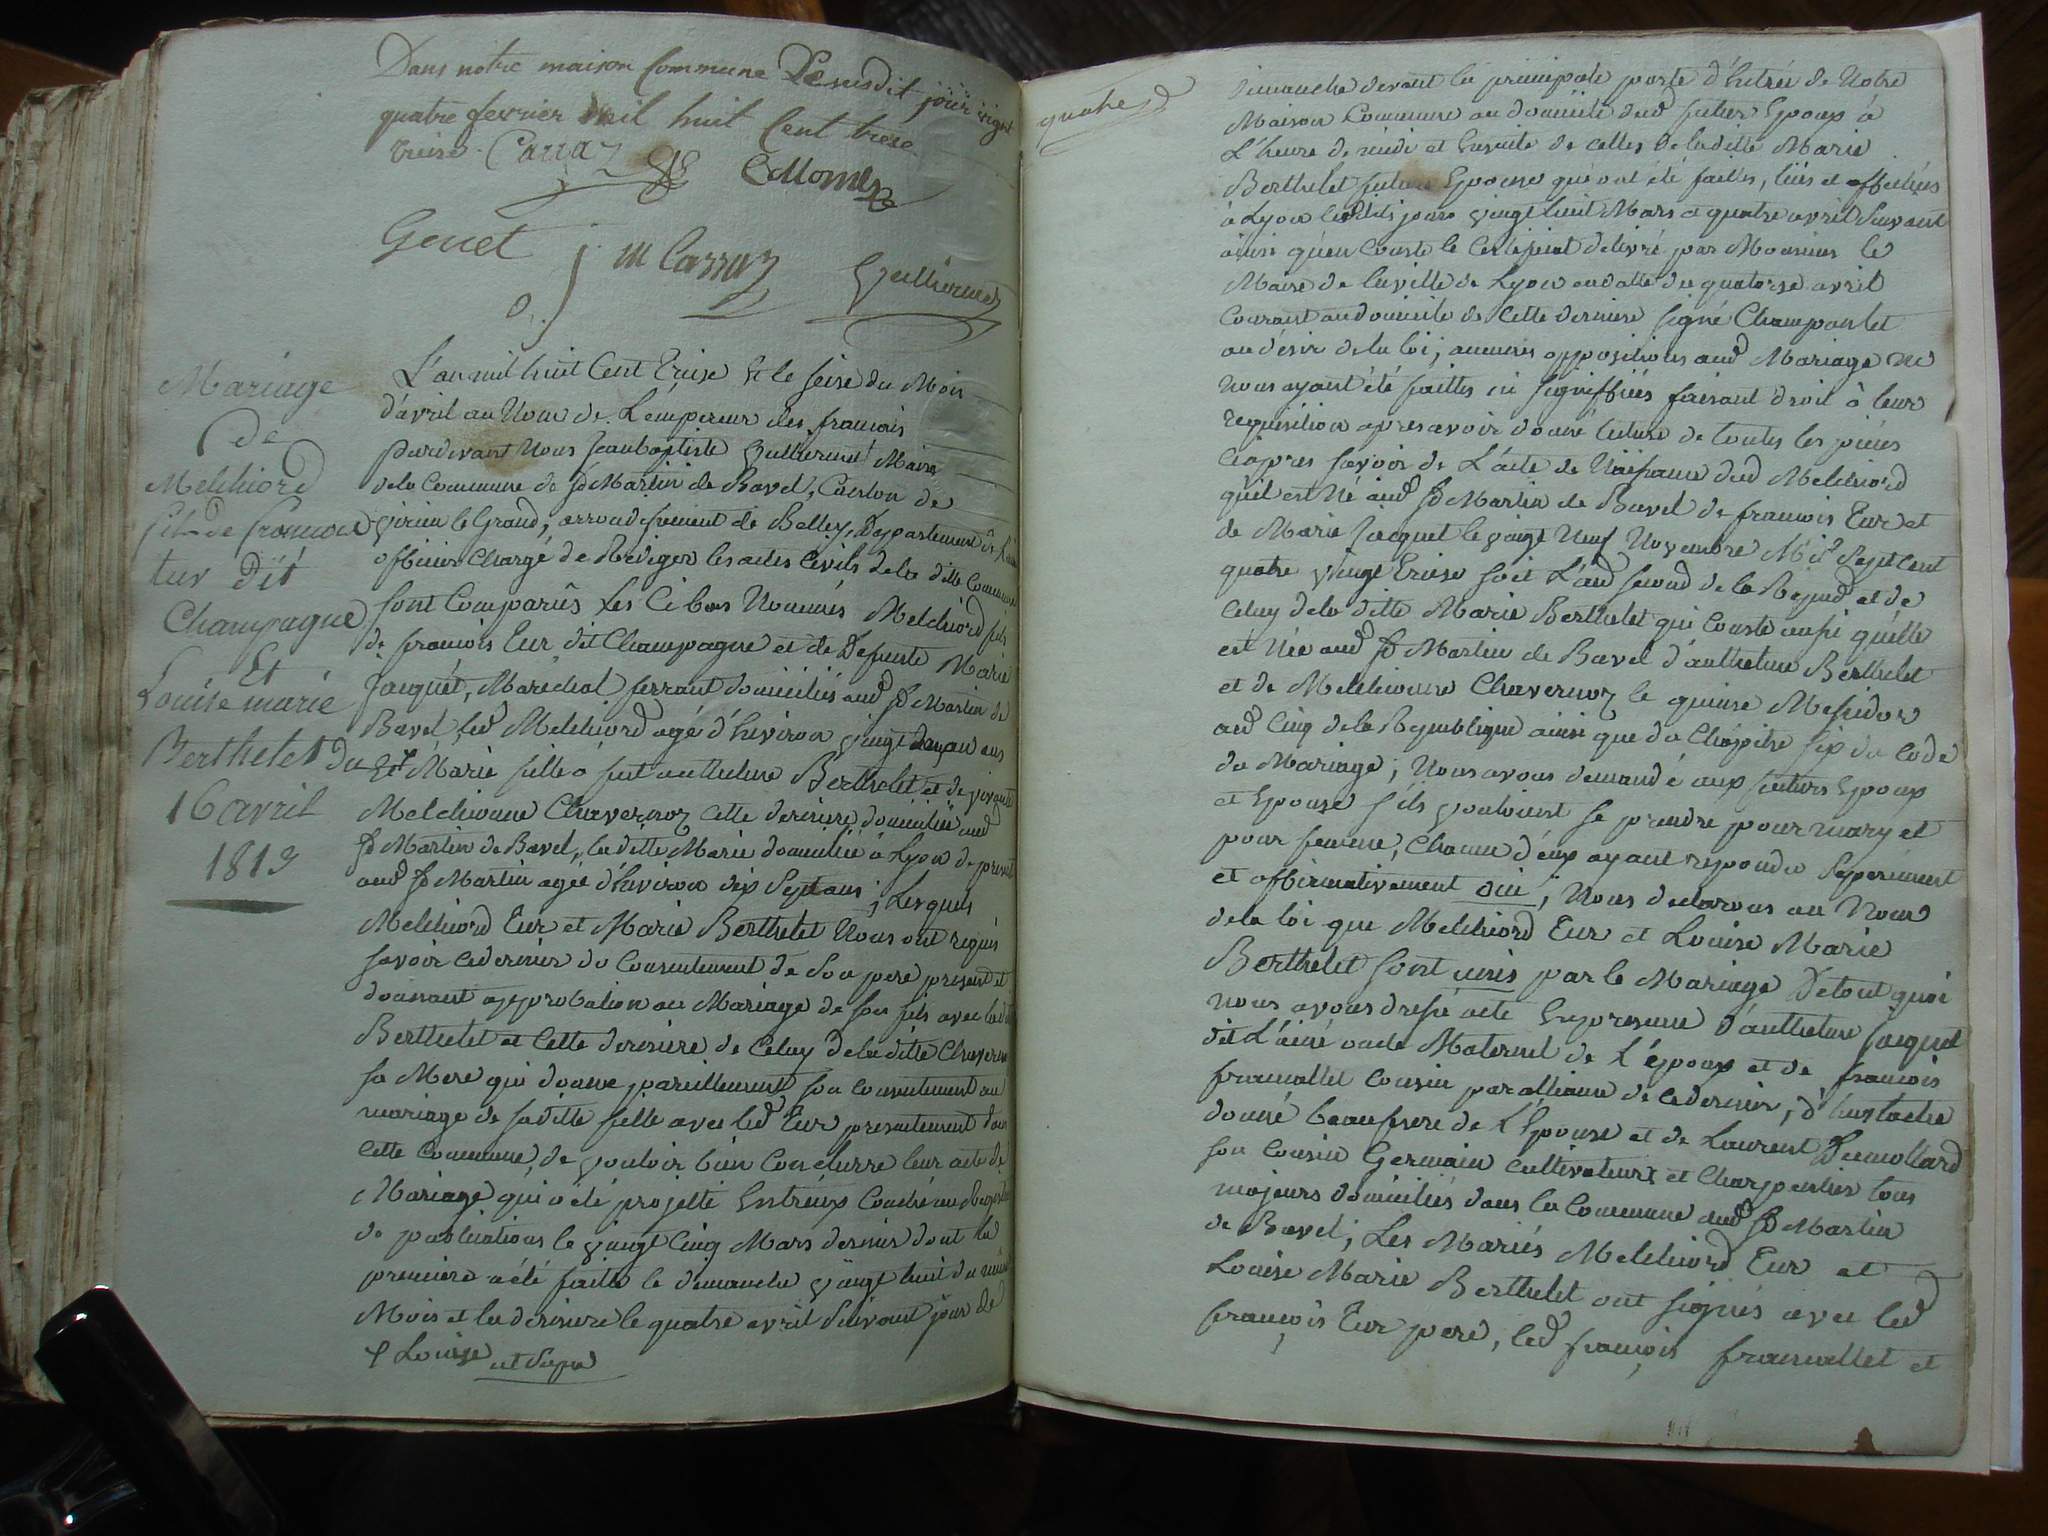 Dans notre maison Commune Le susdit jour vingt
quatre fevrier mil huit Cent treize
Carraz
Genet j m Carraz
Mariage
de
Melchiord
fils de francois
Eur dit
Champagne
Et
Louise marie
Berthelet du
16 avril
1813
L'an mil huit Cent Treise Et le seise du Mois
d'avril au Nom de L'empereur des francois
Pardevant Nous Jean baptiste Maire
dela Commune de St Martin de Bavel, Canton de
Virieu le Grand, arrondissement de Belley, Departement de L'ain
officier Chargé de Rediger les actes Civils dela ditte Commune
sont Comparûs Les Ci bas Nommés Melchiord fils
de francois Eur dit Champagne et de Defunte Marie
Jacquet, Marechal ferrant domiciliés aud St Martin de
Bavel led Melchiord agé d'heviron vingt ans
Et Marie fille a feu anthelme Berthelet et de vivante
Melchionne Chavernoz cette derniere domiciliée aud
St Martin de Bavel, la ditte Marie domiciliée à Lyon de present
aud St Martin agée d'heviron dix Sept ans; Lesquels
Melchiord Eur et Marie Berthelet Nous ont requis
savoir cedernier du Consentement de Son pere present et
donnant approbation au Mariage de son fils avec ladte
Berthelet et Cette derniere de Celuy dela ditte Chavernoz
sa Mere qui donne pareillement son consentement au
mariage de saditte fille avec led Eur presentement dans
cette Commune, de vouloir bien Conclurre leur acte de
Mariage qui a été projetté Entr'eux Couché au Registre
de publications le vingt Cinq Mars dernier dont la
premiere a été faitte le dimanche vingt huit du même
Mois et la derniere le quatre avril Suivant jour de
Louise ut supra
quatre
dimanche devant la principale porte d'hetrée de Notre
Maison Commune au domicile dud futur Epoux à
L'heure de midi et Ensuite de celles de laditte Marie
Berthelet future Epouse qui ont été faittes, lües et affichées
à Lyon lesdits jours vingt huit Mars et quatre avril Suivant
ainsi qu'en Conste le Certificat delivré par Monsieur le
Maire de la ville de Lyon en datte du quatorze avril
Courant au domicile de Cette derniere signé Champanhet
au désir de la loi; aucunes oppositions aud Mariage ne
nous ayant été faittes ni signiffiées faisant droit à leur
requisition apres avoir donné lecture de toutes les pieces
ciapres savoir de L'acte de Naissance dud Melchiord
qu'il est Né aud St Martin de Bavel de francois Eur et
de Marie Jacquet le vingt Neuf Novembre Mil Sept Cent
quatre vingt Treise soit L'an second de la Repud et de
Celuy dela ditte Marie Berthelet qui Conste aussi quélle
est Née aud St Martin de Bavel d'anthelme Berthelet
et de Melchionne Chavernoz le quinse Messidor
and Cinq de la Republique ainsi que du Chapitre six du Code
du Mariage; Nous avons demandé aux futurs Epoux
et Epouse s'ils vouloient se prendre pour mary et
pour femme, Chacun d'eux ayant repondu Séparement
et affirmativement oui; Nous declarons au Nom
dela loi que Melchiord Eur et Louise Marie
Berthelet sont unis par le Mariage De tout quoi
nous avons dressé acte En presence d'anthelme Jacquet
dit L'ainé oncle Maternel de L'époux et de francois
framollet cousin par alliance de ce dernier, d'
donné beau frere de L'Epouse et de Laurent Dumollard
son cousin Germain cultivateurs et Charpentier tous
majeurs domiciliés dans la Commune dud St Martin
de Bavel; Les Mariés Melchiord Eur et
Louise Marie Berthelet ont signés avec led
françois Eur pere, led françois framollet et